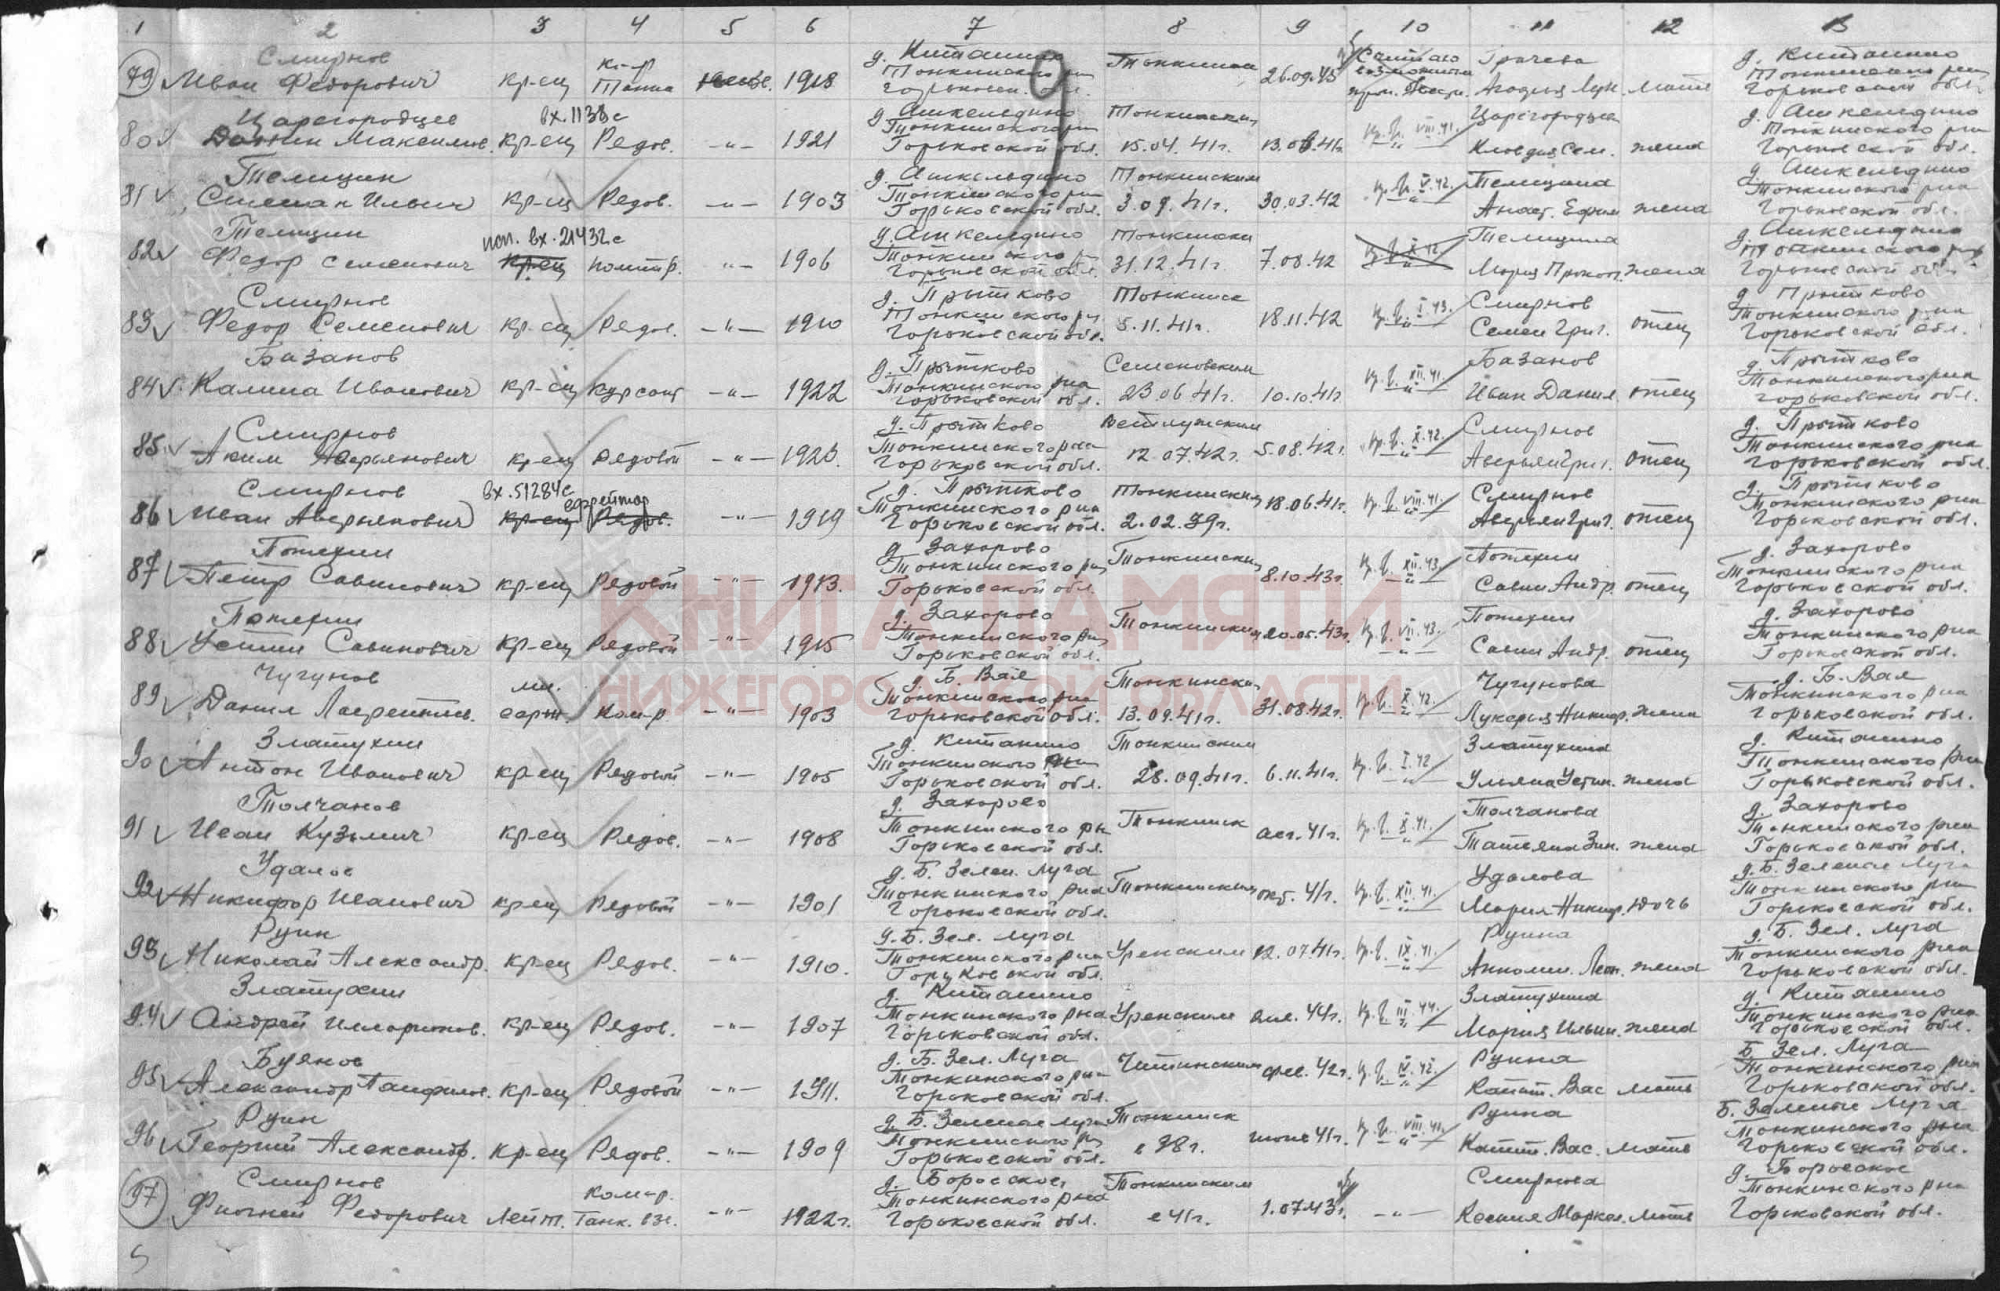 1 2 3 4 5 6 7 8 9 10 11 12 13
79 Смирнов Иван Федорович кр-ец к-р Танка 1918 д. Китанино Тонкинский Горьковск. обл. Тонкинск 26.09.43 Грачева мать д. Китанино Тонкинского р-на Горьковской обл.
80 Царегородцев Максимов. вх.1138с кр-ец Рядов. -"- 1921 д. Ашкельдино Тонкинского р-на Горьковской обл. Тонкинск 15.04.41г. VIII.41. Царегородцева Клавдия Сем. жена д. Ашкельдино Тонкинского р-на Горьковской обл.
81 Телицин Степан Ильич кр-ец Рядов. -"- 1903 д. Ашкельдино Тонкинского р-на Горьковской обл. Тонкинским 3.09.41г. 30.03.42 V.42. Телицина Анаст. Ефим жена д. Ашкельдино Тонкинского р-на Горьковской обл.
82 Телицин Федор Семенович поп. вх.21432с кр-ец политр. -"- 1906 д. Ашкельдино Тонкинского р Горьковской обл. Тонкински 31.12.41г 7.08.42 Телицина Мария Прокоп. жена д. Ашкельдино Тонкинского р-на Горьковской обл.
83 Смирнов Федор Семенович кр-ец Рядов. -"- 1910 д. Прытково Тонкинского р Горьковской обл. Тонкинск 5.11.41г. 18.11.42 I.43. Смирнов Семен Григ. отец д Прытково Тонкинского р-на Горьковской обл.
84 Базанов Калина Иванович кр-ец Курсант -"- 1922 д. Прытково Тонкинского р-на Горьковской обл. Семеновским 23.06.41г. 10.10.41г XII.41 Базанов Иван Данил. отец д. Прытково Тонкинского р-на Горьковской обл.
85 Смирнов Аким Аверьянович кр-ец Рядовой -"- 1923. д. Прытково Тонкинского р-на Горьковской обл. Ветлужским 12.07.42г. 5.08.42г. X.42. Смирнов Аверьян Григ. отец д. Прытково Тонкинского р-на Горьковской обл.
86 Смирнов Иван Аверьянович вх.51284с кр-ец ефрейтор Рядов. -"- 1919 д. Прытково Тонкинского р-на Горьковской обл. Тонкинским 2.02.39г. 18.06.41г. VIII.41. Смирнов Аверьян Григ. отец д. Прытково Тонкинского р-на Горьковской обл.
87 Потехин Петр Савинович кр-ец Рядовой -"- 1913. д. Захарово Тонкинского р-на Горьковской обл. Тонкинским 8.10.43г. XII.43 Потехин Савин Андр. отец д. Захарово Тонкинского р-на Горьковской обл.
КНИГА ПАМЯТИ
88 Потехин Устин Савинович кр-ец Рядовой -"- 1915 д. Захарово Тонкинского р-на Горьковской обл. Тонкинским 20.05.43г. VII.43. Потехин Савин Андр. отец д. Захарово Тонкинского р-на Горьковской обл.
НИЖЕГОРОДСКОЙ ОБЛАСТИ
89 Чугунов Данил Лаврентьев. мл. серж. Ком-р -"- 1903 д. Б. Вая Тонкинского р-на Горьковской обл. Тонкински 13.09.41г. 31.08.42г. X.42. Чугунова Лукерья Никифор. жена д. Б. Вая Тонкинского р-на Горьковской обл.
90 Златухин Антон Иванович кр-ец Рядовой -"- 1905 д. Китанино Тонкинского р-на Горьковской обл. Тонкинским 28.09.41г. 6.11.41г. I.42 Златухина Ульяна Устин. жена д. Китанино Тонкинского р-на Горьковской обл.
91 Толчанов Иван Кузьмич кр-ец Рядов. -"- 1908 д. Захарово Тонкинского р-н Горьковской обл. Тонкинск авг. 41г. X.41. Толчанова Татьяна Зин. жена д. Захарово Тонкинского р-на Горьковской обл.
92 Удалов Никифор Иванович кр-ец Рядовой -"- 1901 д. Б. Зелен. Луга Тонкинского р-на Горьковской обл. Тонкинским окт. 41г. XII.41. Удалова Мария Никифр. дочь д. Б. Зеленые Луга Тонкинского р-на Горьковской обл.
93 Руин Николай Александр. кр-ец Рядов. -"- 1910. д. Б. Зел. Луга Тонкинского р-на Горьковской обл. Уренским 12.07.41г. IX.41. Руина жена д. Б. Зел. Луга Тонкинского р-на Горьковской обл.
94 Златухин Андрей Илларионов. кр-ец Рядов. -"- 1907 д. Китанино Тонкинского р-на Горьковской обл. Уренским янв. 44г. III.44. Златухина Мария Ильин. жена д. Китанино Тонкинского р-на Горьковской обл.
95 Буянов Александр Панфилов. кр-ец Рядовой -"- 1911. д. Б. Зел. Луга Тонкинского р-на Горьковской обл. Читинским фев. 42г. IV.42. Руина Катит. Вас мать Б. Зел. Луга Тонкинского р-на Горьковской обл.
96 Руин Георгий Александр. кр-ец Рядов. -"- 1909 д. Б. Зеленые Луга Тонкинского р Горьковской обл. Тонкинск в 38г. июне 41г. VIII.41. Руина Капит. Вас. мать Б. Зеленые Луга Тонкинского р-на Горьковской обл.
97 Смирнов Фионей Федорович Лейт. Ком-р. Танк. вз. -"- 1922г. д. Боровское, Тонкинского р-на Горьковской обл. Тонкинским в 41г. 1.07.43г. -"- Смирнова Ксения Маркел. мать д. Боровское Тонкинского р-на Горьковской обл.